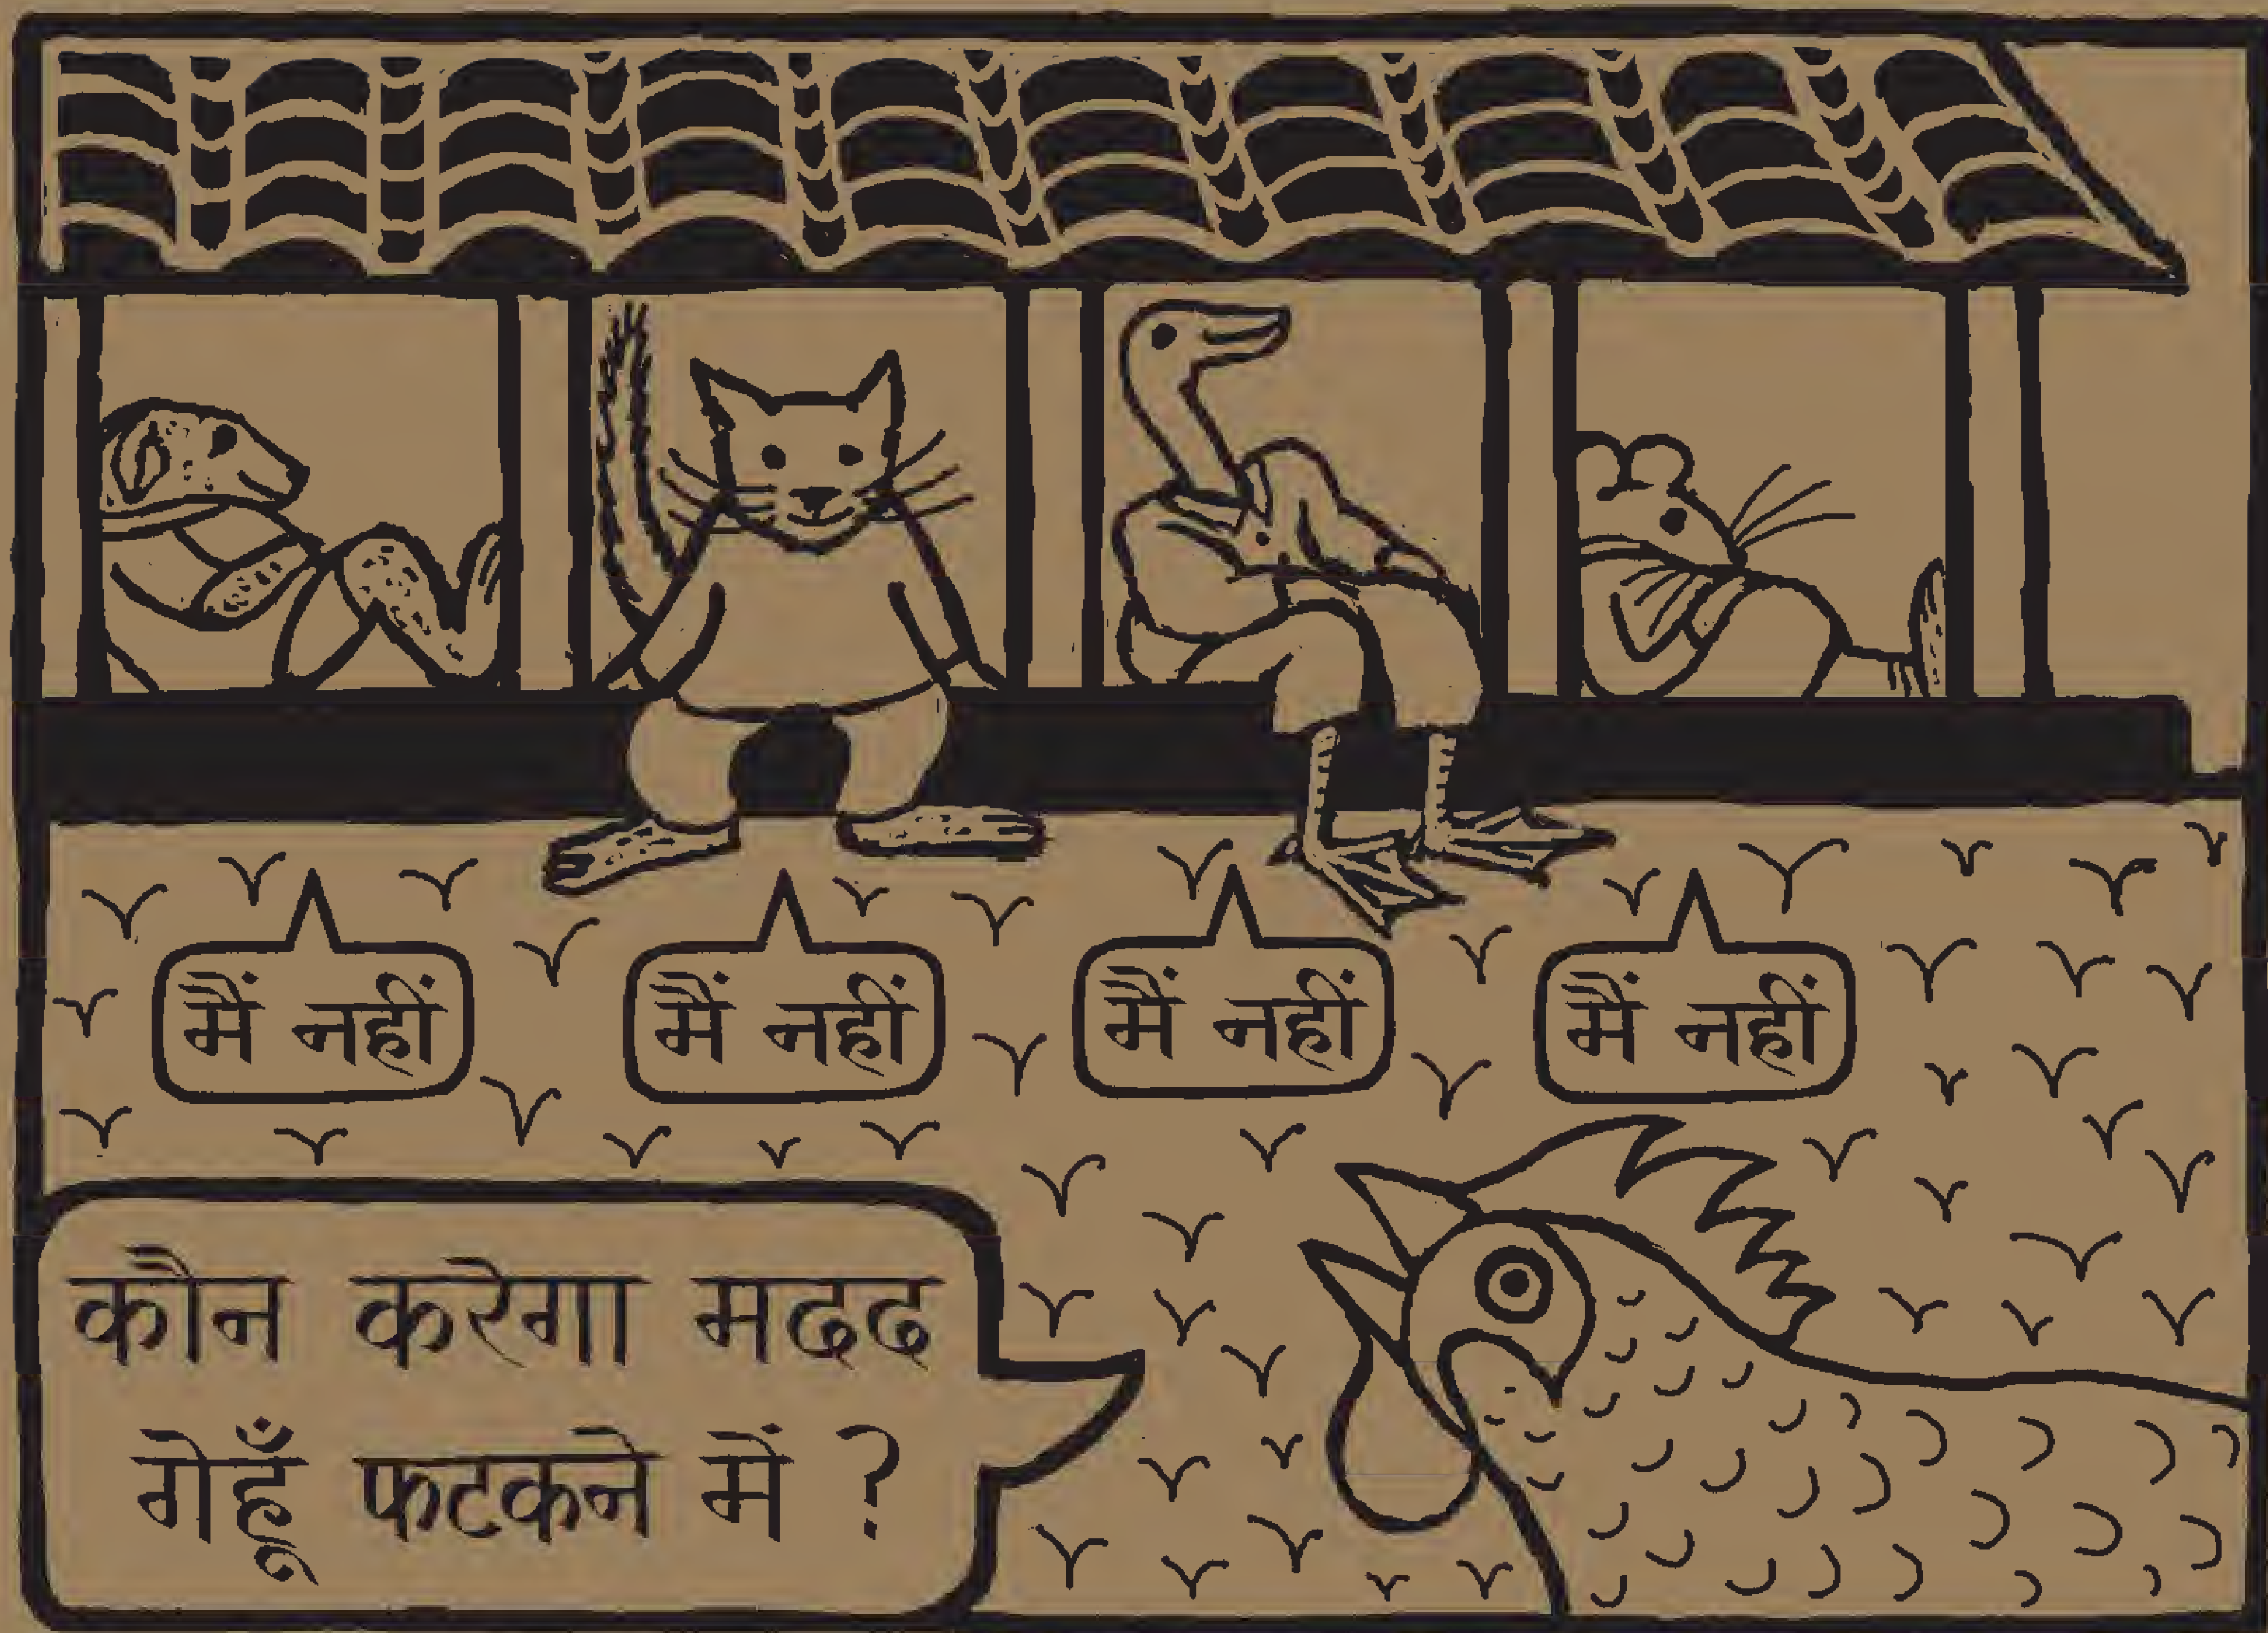 मैं नहीं
मैं नहीं
मैं नहीं
मैं नहीं
कौन करेगा मदद
गेहूँ फटकने में ?